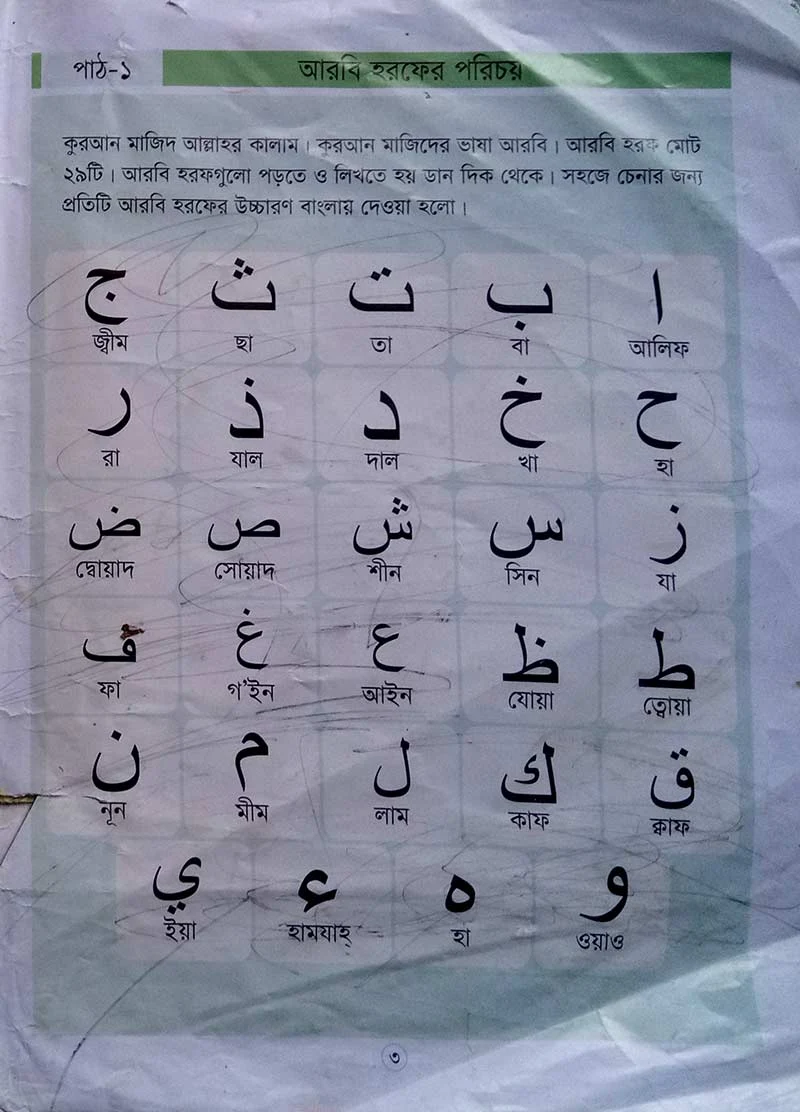 পাঠ-১ আরবি হরফের পরিচয়
কুরআন মাজিদ আল্লাহর কালাম। কুরআন মাজিদের ভাষা আরবি। আরবি হরফ মোট
২৯টি। আরবি হরফগুলো পড়তে ও লিখতে হয় ডান দিক থেকে। সহজে চেনার জন্য
প্রতিটি আরবি হরফের উচ্চারণ বাংলায় দেওয়া হলো।
ا ب ت ث ج
আলিফ বা তা ছা জ্বীম
ح خ د ذ ر
হা খা দাল যাল রা
ز س ش ص ض
যা সিন শীন সোয়াদ দ্বোয়াদ
ط ظ ع غ ف
ত্বোয়া যোয়া আইন গ'ইন ফা
ق ك ل م ن
ক্বাফ কাফ লাম মীম নূন
و ه ء ي
ওয়াও হা হামযাহ্ ইয়া
৩